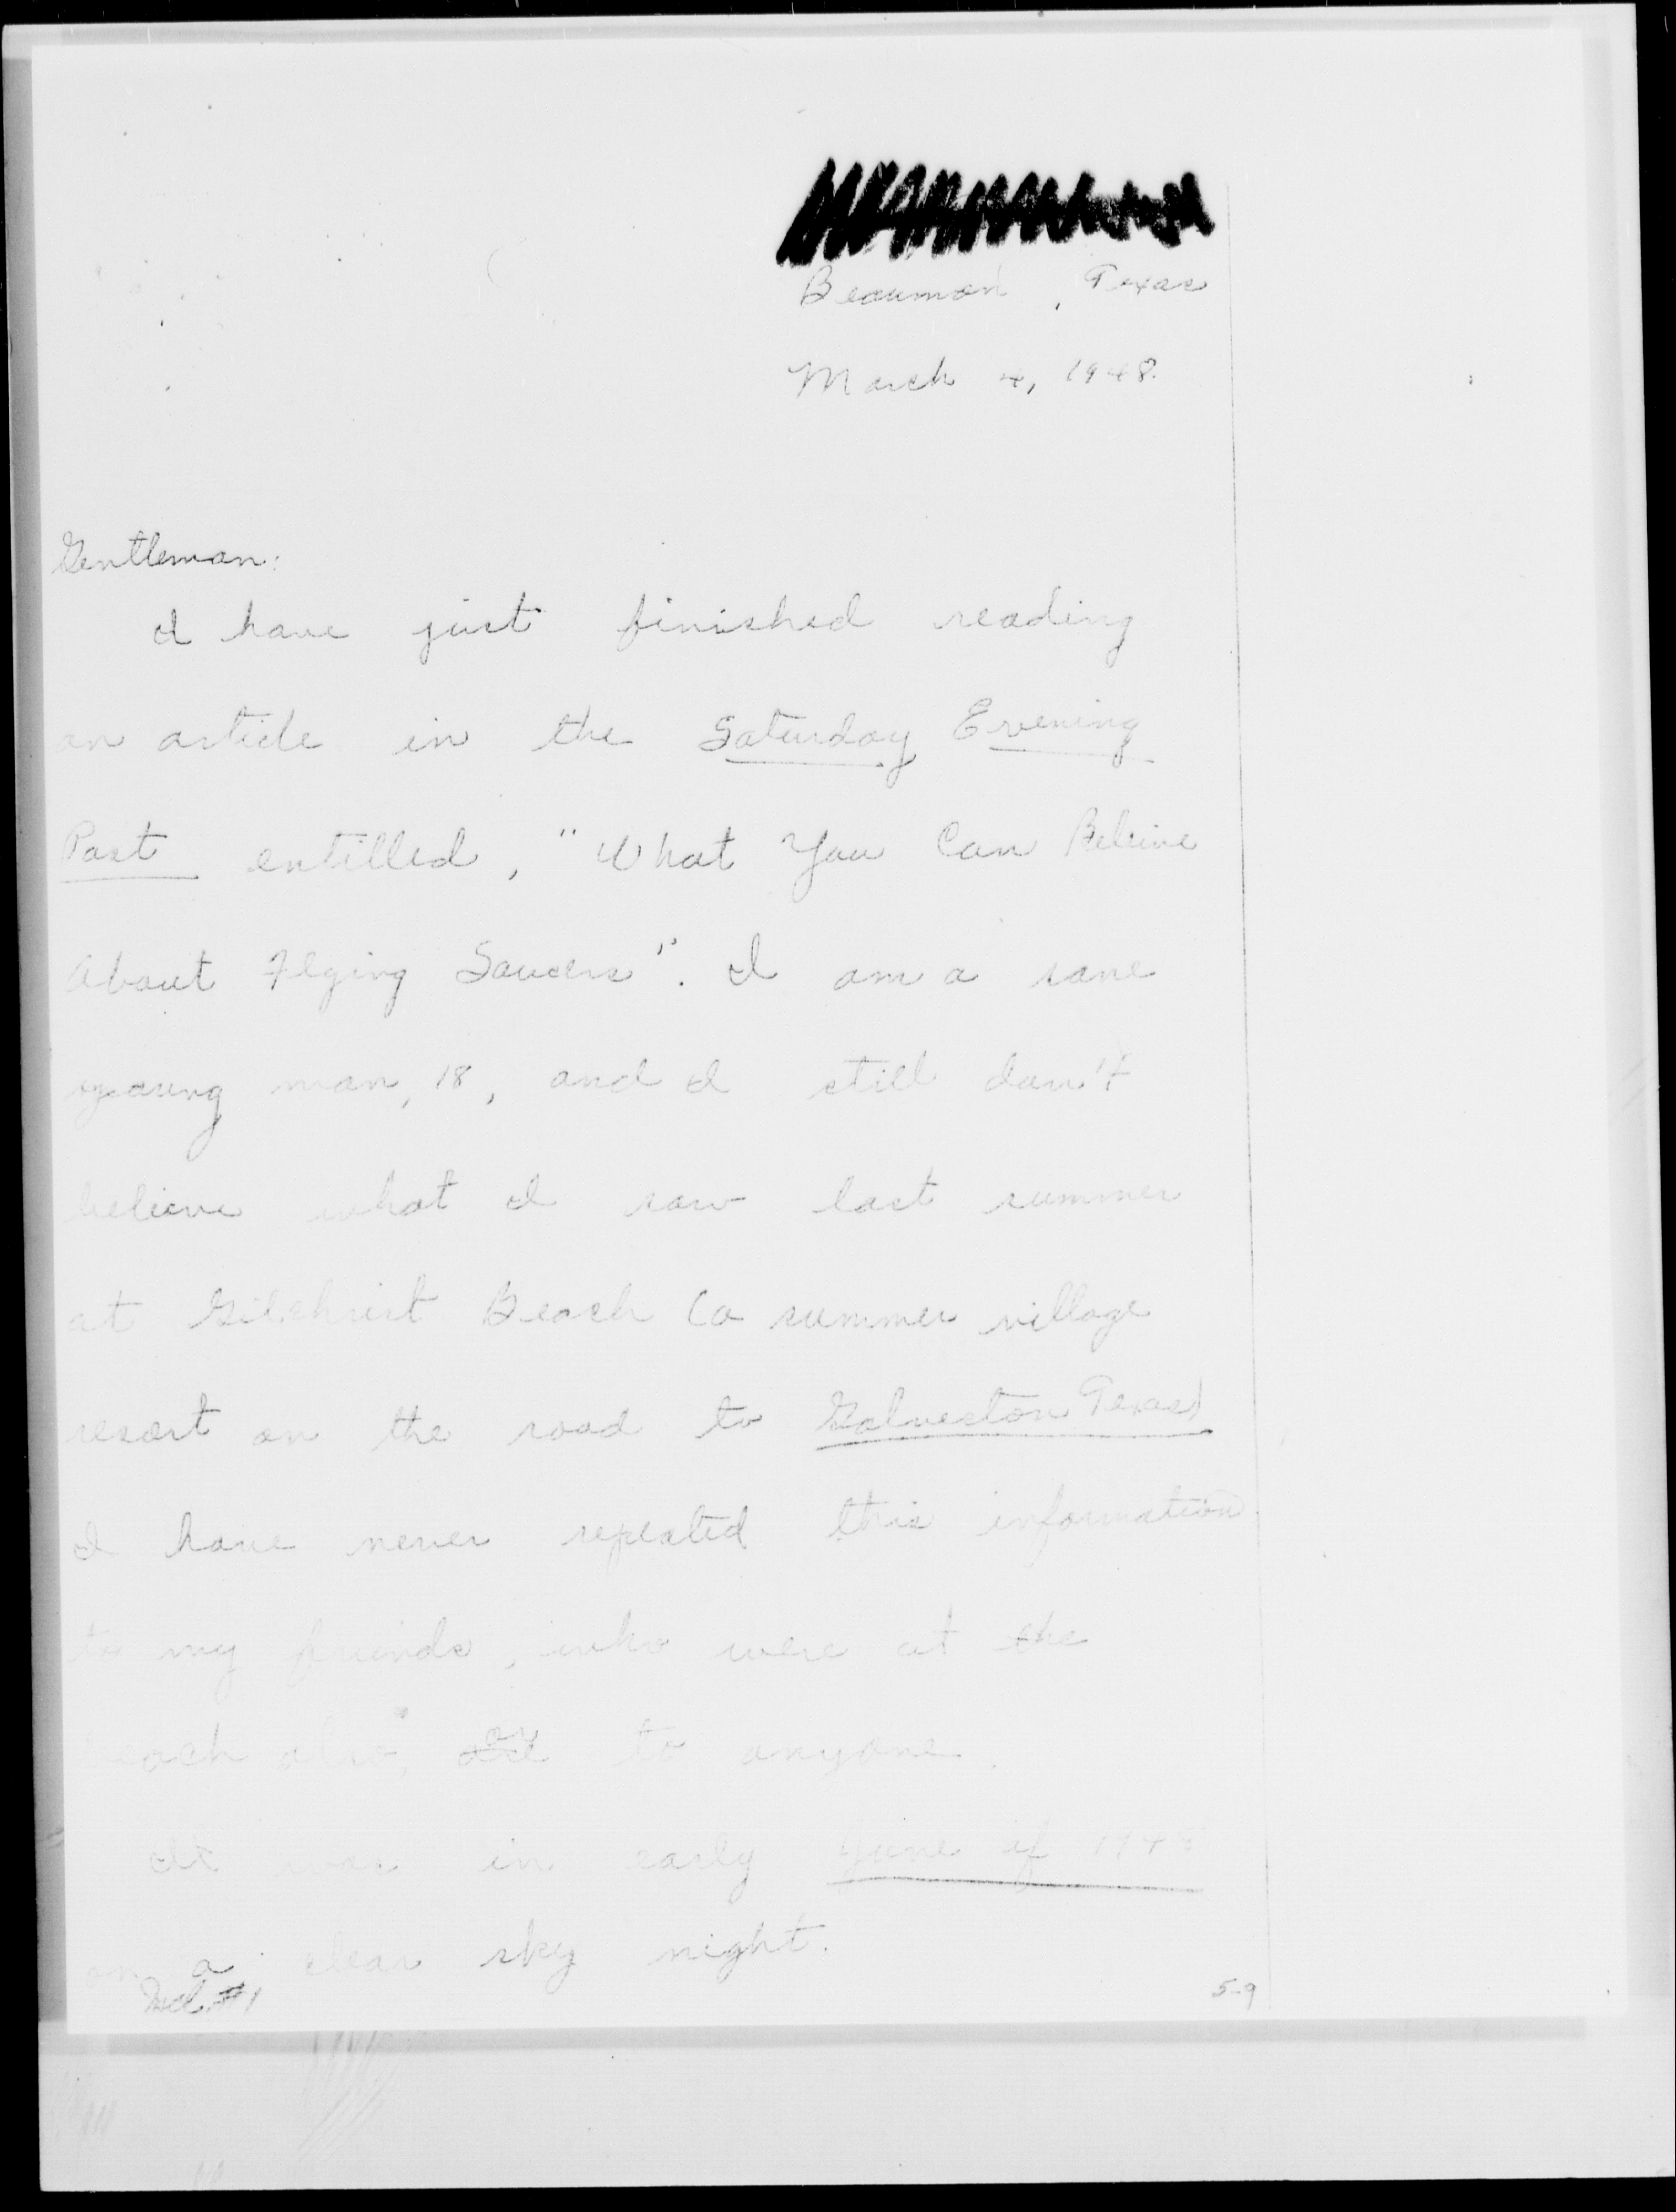 Beaumont, Texas
March 4, 1948.
Gentleman:
I have just finished reading
an article in the Saturday Evening
Post entilled, "What You Can Beleive
About Flying Saucers". I am a sane
young man, 18, and I still don't
believe what I saw last summer
at Gilchrist Beach (a summer village
resort on the road to Galveston Texas)
I have never repeated this information
to my friends, who were at the
beach also, or to anyone.
It was in early June of 1948
on a clear sky night.
Incl #1
5-9